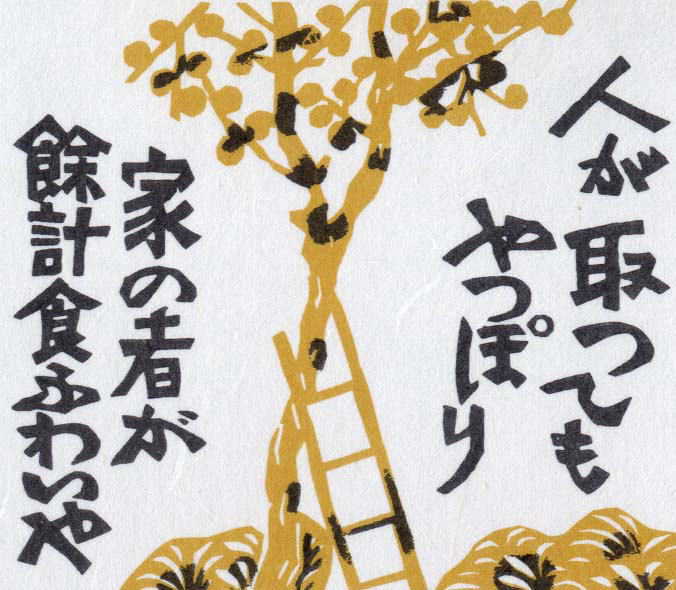 人が取つても
やつぽり
家の者が
餘計食ふわいや